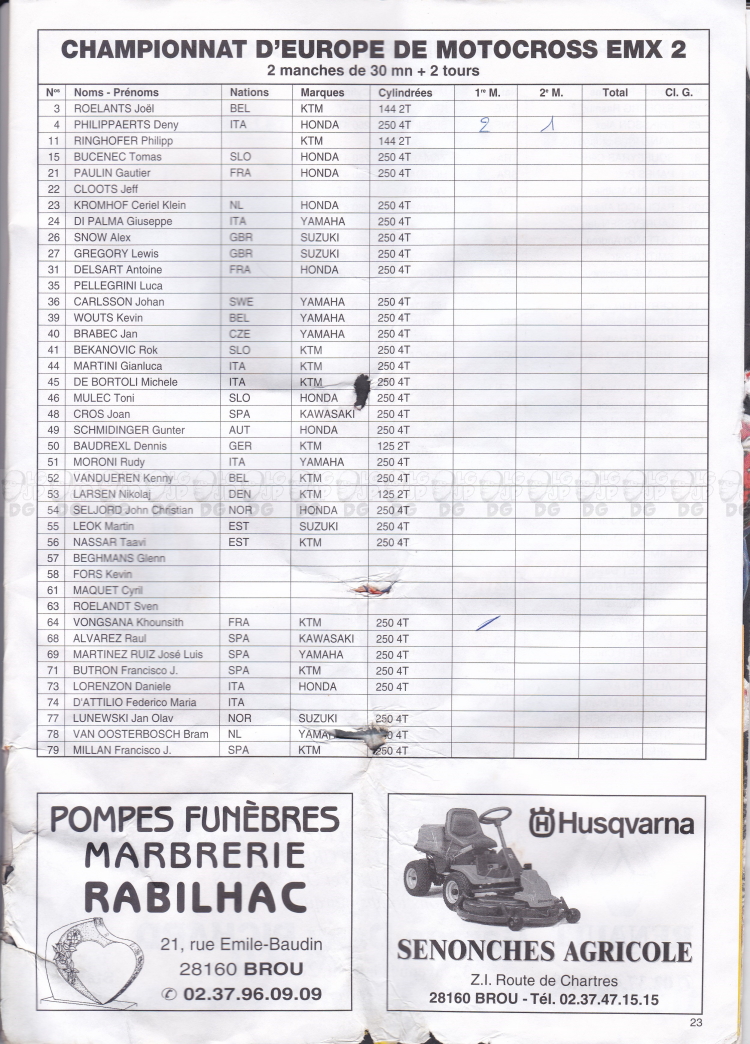 CHAMPIONNAT D'EUROPE DE MOTOCROSS EMX 2
2 manches de 30 mn + 2 tours
Nos Noms - Prénoms Nations Marques Cylindrées 1re M. 2e M. Total Cl. G.
3 ROELANTS Joël BEL KTM 144 2T
4 PHILIPPAERTS Deny ITA HONDA 250 4T 2 1
11 RINGHOFER Philipp KTM 144 2T
15 BUCENEC Tomas SLO HONDA 250 4T
21 PAULIN Gautier FRA HONDA 250 4T
22 CLOOTS Jeff
23 KROMHOF Ceriel Klein NL HONDA 250 4T
24 DI PALMA Giuseppe ITA YAMAHA 250 4T
26 SNOW Alex GBR SUZUKI 250 4T
27 GREGORY Lewis GBR SUZUKI 250 4T
31 DELSART Antoine FRA HONDA 250 4T
35 PELLEGRINI Luca
36 CARLSSON Johan SWE YAMAHA 250 4T
39 WOUTS Kevin BEL YAMAHA 250 4T
40 BRABEC Jan CZE YAMAHA 250 4T
41 BEKANOVIC Rok SLO KTM 250 4T
44 MARTINI Gianluca ITA KTM 250 4T
45 DE BORTOLI Michele ITA KTM 250 4T
46 MULEC Toni SLO HONDA 250 4T
48 CROS Joan SPA KAWASAKI 250 4T
49 SCHMIDINGER Gunter AUT HONDA 250 4T
50 BAUDREXL Dennis GER KTM 125 2T
51 MORONI Rudy ITA YAMAHA 250 4T
52 VANDUEREN Kenny BEL KTM 250 4T
53 LARSEN Nikolaj DEN KTM 125 2T
54 SELJORD John Christian NOR HONDA 250 4T
55 LEOK Martin EST SUZUKI 250 4T
56 NASSAR Taavi EST KTM 250 4T
57 BEGHMANS Glenn
58 FORS Kevin
61 MAQUET Cyril
63 ROELANDT Sven
64 VONGSANA Khounsith FRA KTM 250 4T
68 ALVAREZ Raul SPA KAWASAKI 250 4T
69 MARTINEZ RUIZ José Luis SPA YAMAHA 250 4T
71 BUTRON Francisco J. SPA KTM 250 4T
73 LORENZON Daniele ITA HONDA 250 4T
74 D'ATTILIO Federico Maria ITA
77 LUNEWSKI Jan Olav NOR SUZUKI 250 4T
78 VAN OOSTERBOSCH Bram NL
79 MILLAN Francisco J. SPA KTM 250 4T
POMPES FUNÈBRES
MARBRERIE
RABILHAC
21, rue Emile-Baudin
28160 BROU
✆ 02.37.96.09.09
Husqvarna
SENONCHES AGRICOLE
Z.I. Route de Chartres
28160 BROU - Tél. 02.37.47.15.15
23